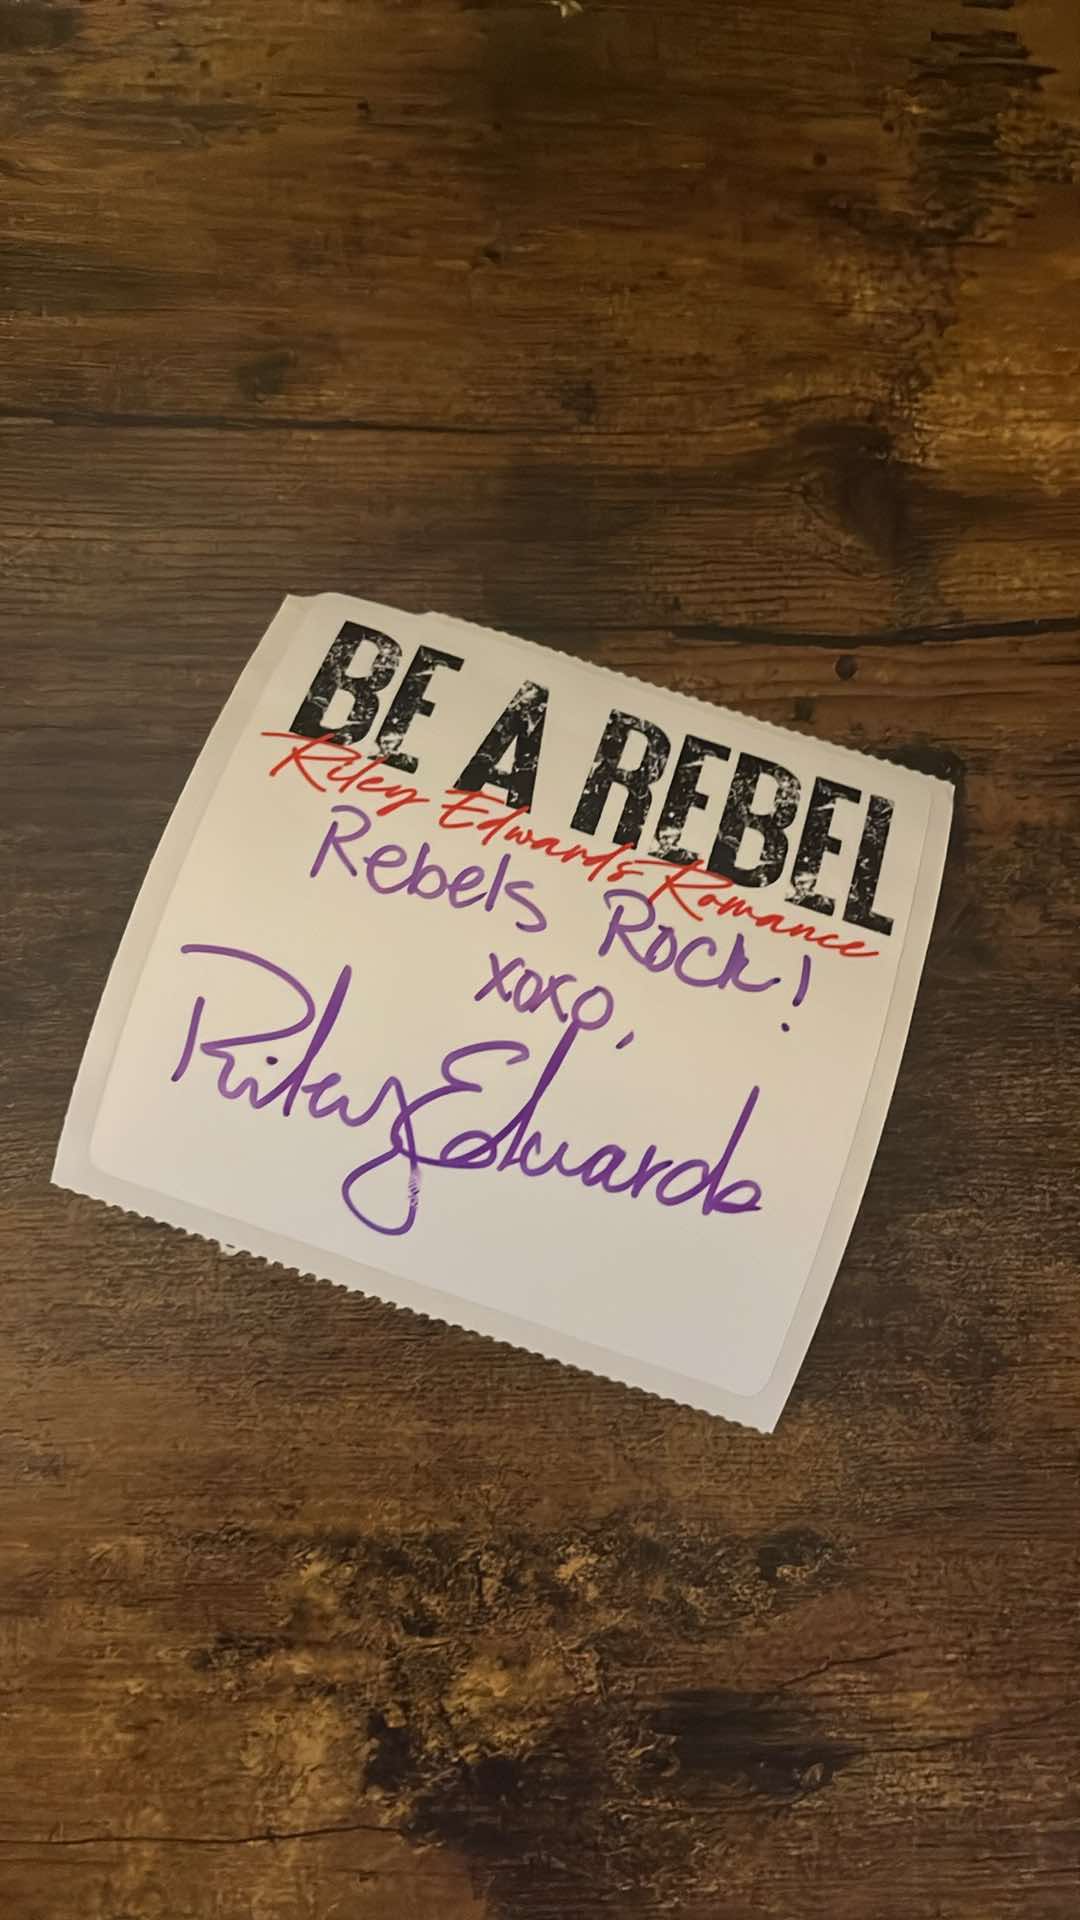 BE A REBEL
Riley Edwards Romance
Rebels Rock!
xoxo,
Riley Edwards